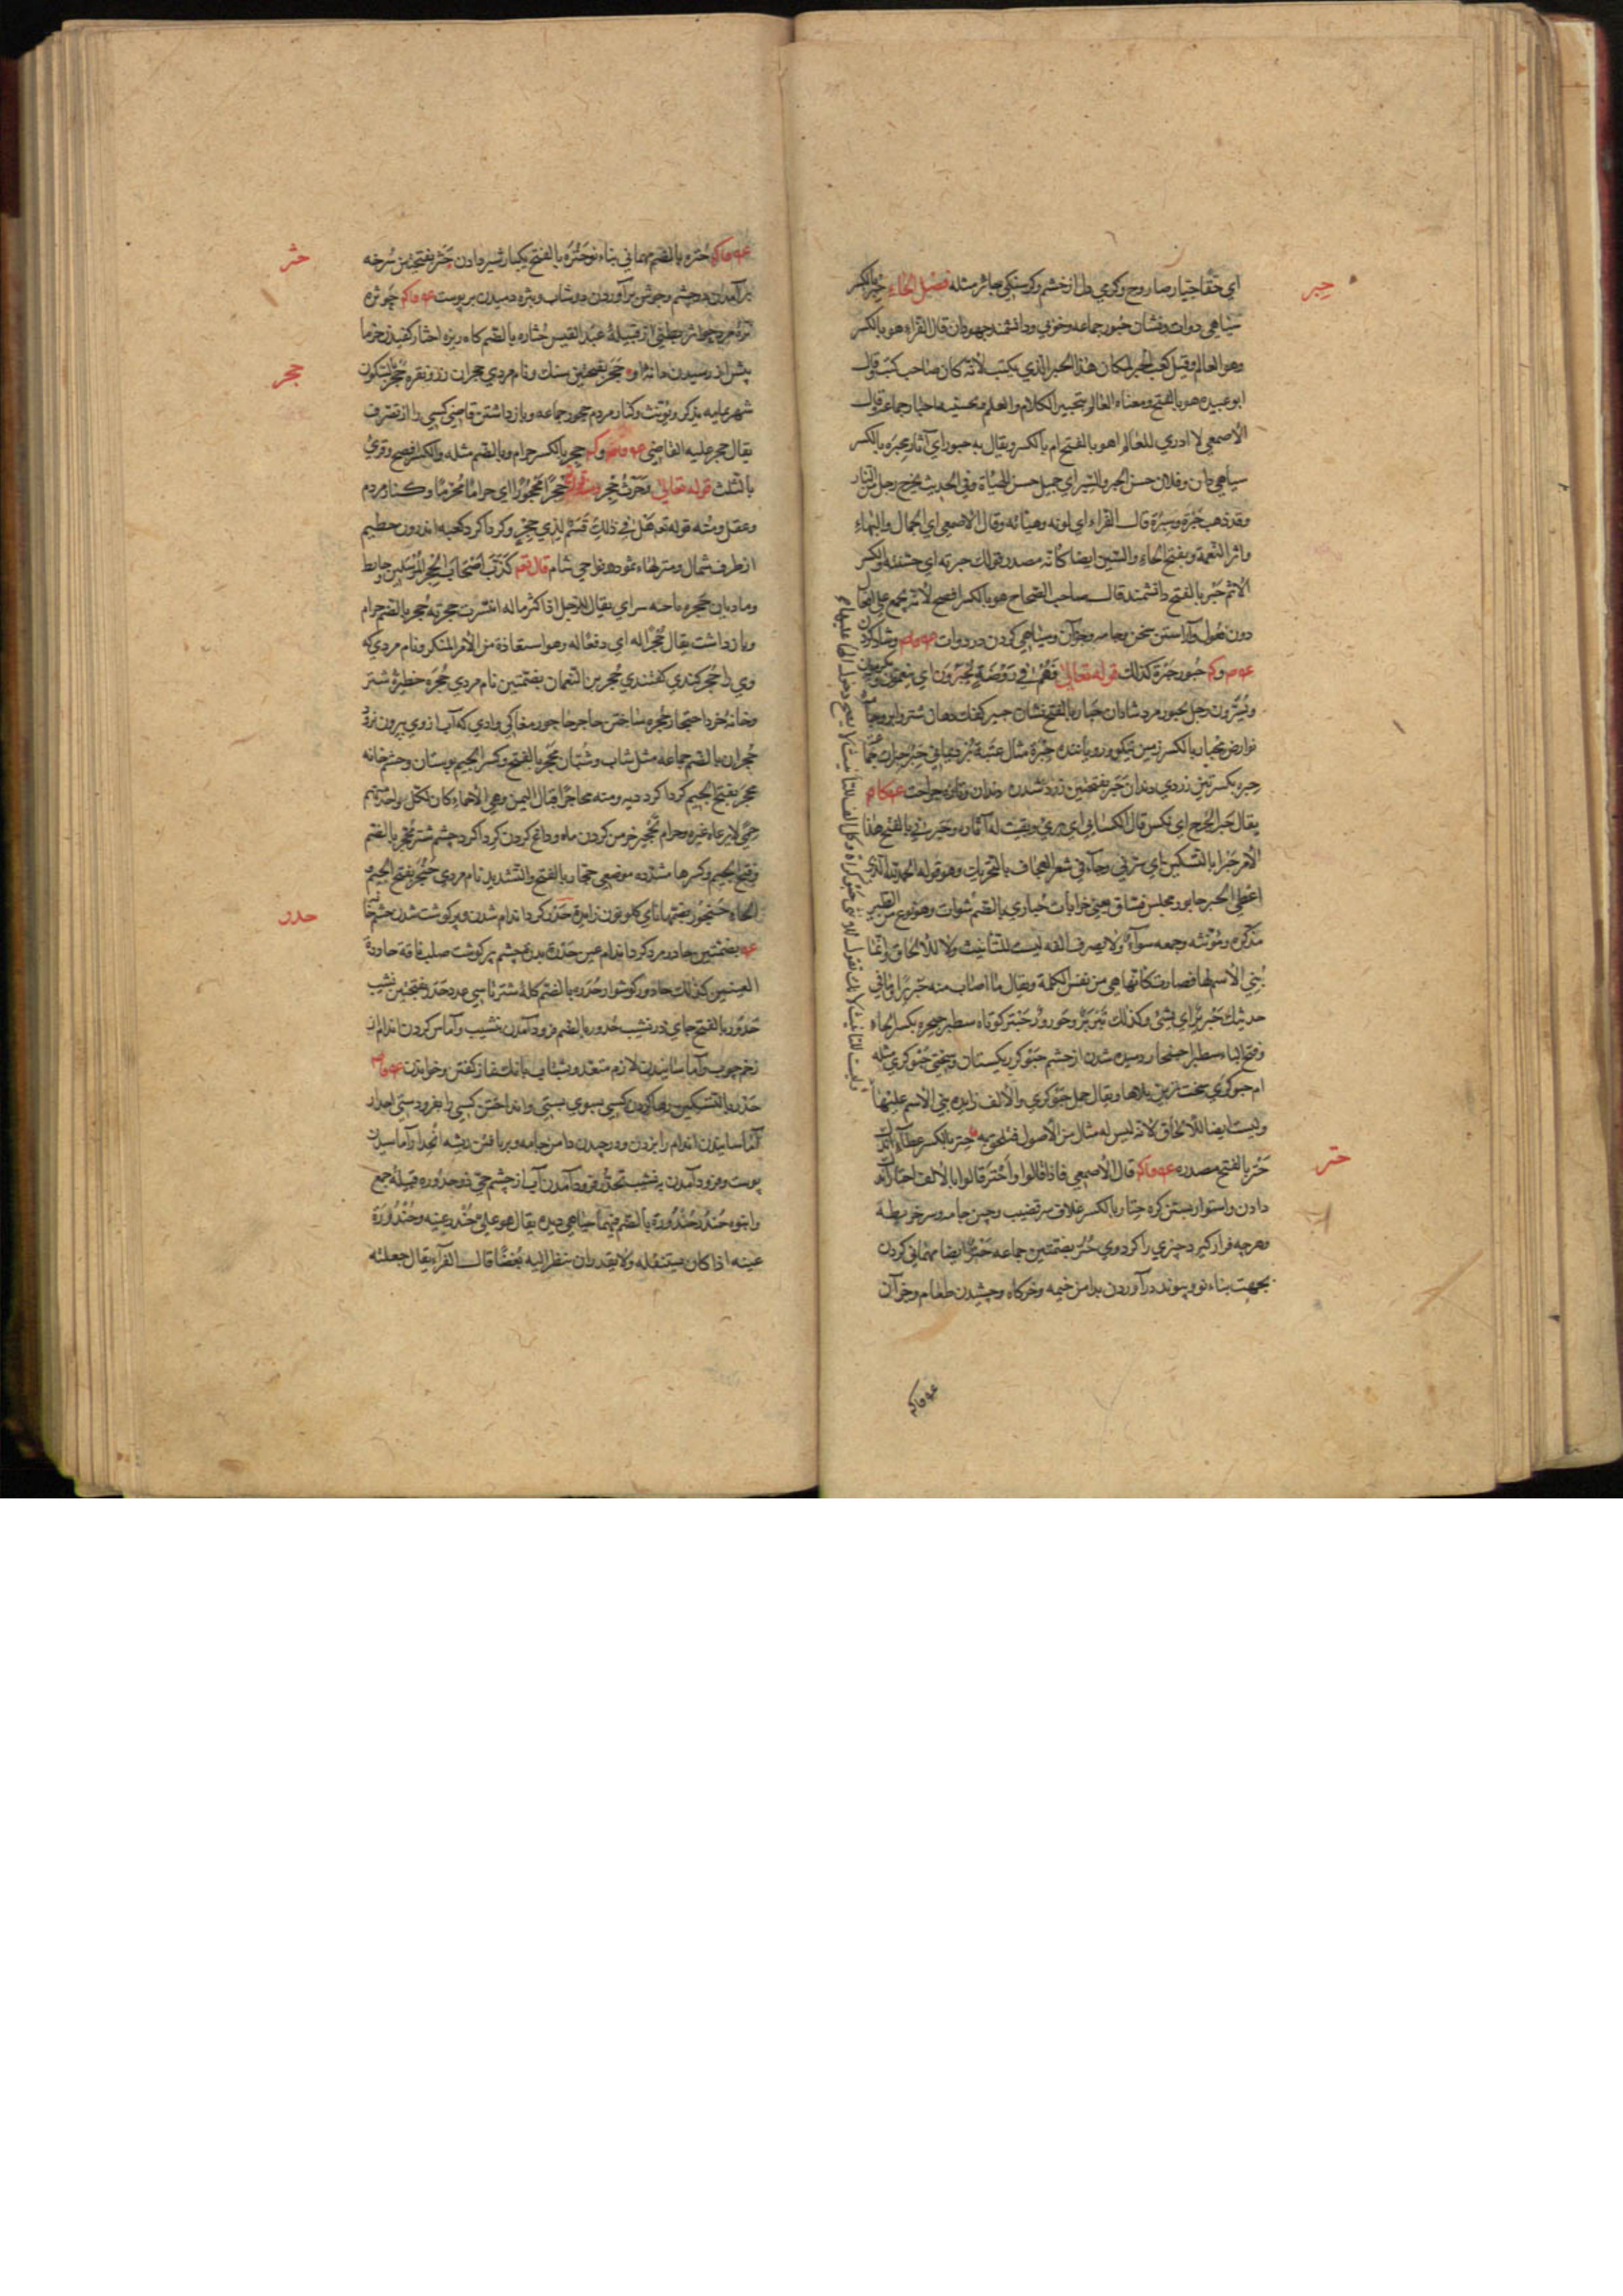 حبر
اي حقا جيار صاروج وكرمي دل از خشم وكرسنكي جائر مثله فصل الحاء حبر بالكسر
سياهي دوات ونشان حبور جماعه وخوبي ودانشمند جهودان قال الفراء هو بالكسر
وهو العالم وقيل كعب الحبر لمكان هذا الحبر الذي يكتب لانه كان صاحب كتب وقال
ابو عبيده هو بالفتح ومعناه العالم بتحبير الكلام والعلم وتحسينه احبار جماعة وقال
الاصمعي لا ادري للعالم اهو بالفتح ام بالكسر ويقال به حبور اي آثار محبره بالكسر
سياهي دان وفلان حسن الحبر والسبر اي جميل حسن الهيأة وفي الحديث يخرج رجل من النار
وقد ذهب حبره وسبره قال الفراء اي لونه وهيأته وقال الاصمعي اي الجمال والبهاء
واثر النعمة وبفتح الحاء والسين ايضا كانه مصدر قولك حبرته اي حسنته والكسر
الاثم حبر بالفتح دانشمند قال صاحب الصحاح هو بالكسر افصح لانه يجمع على افعال
دون فعول وآراستن سخن وجامه وجز آن وسياهي كردن در دوات
حبور حبرة كذلك قوله تعالى فهم في روضة يحبرون اي ينعمون
ويسرون رجل يحبور مرد شادان حبار بالفتح نشان حبير كفك دهان شتر وابر وجامه
نو ارض محبار بالكسر زمين نيكو وروياننده حبرة مثال عنبة برد يماني حبر حبرات جماعة
حبره بكسرتين زردي دندان حبر بفتحتين زرد شدن دندان وتازه جراحت
يقال حبر الجرح اي نكس قال الكسائي اي بري وبقيت له آثار وحبرني بالفتح هذا
الامر حبرا بالتسكين اي سرني وجاء في شعر العجاج بالتحريك وهو قوله الحمد لله الذي
اعطى الحبر حابور مجلس فساق يعني خرابات حباري بالضم شوات وهو نوع من الطير
مذكره ومؤنثه وجمعه سواء ولا يصرف الفه ليست للتأنيث ولا للالحاق وانما
بني الاسم لها فصارت كانها هي من نفس الكلمة ويقال ما اصاب منه حبربرا وما في
حديثك حبربر اي شيء وكذلك تبربر وحورور حبتر كوتاه سطبر حبجره بكسر الحاء
وفتح الباء سطبر احبنجار دميده شدن از خشم حبوكر ريكستان وسختي حبوكري مثله
ام حبوكري سخت ترين بلاها ويقال جمل حبوكري والالف زايده بني الاسم عليها
وليست ايضا للالحاق لانه ليس له مثال من الاصول فيلحق به حتر بالكسر عطاء اندك
حتر
حتر بالفتح مصدره قال الاصمعي فاذا قالوا واحتر قالوا بالالف احتار
دادن واستوار بستن كره حتار بالكسر غلاف سر قضيب وچين جامه وسر خريطه
وهرچه فرا كيرد چيزي را كرد وي حتر بضمتين جماعه حتر ايضا مهماني كردن
بجهت بناء نو وپيوند در آوردن بدامن خيمه وخركاه وچشيدن طعام وخز آن
حثر
حتره بالضم مهماني بناء نو حتره بالفتح يكبار شير دادن حثر بفتحتين سرخه
بر آمدن در چشم وجوش بر آوردن دوشاب وبثره دميدن بر پوست حوثره
نره مرد حواثر بطني از قبيلة عبد القيس حثاره بالضم كاه ريزه احثار كفيدن خرما
حجر
پيش از رسيدن دانه او حجر بفتحتين سنك ونام مردي حجران زر ونقره حجر بالسكون
شهر يمامه يذكر ويؤنث وكنار مردم حجور جماعه وباز داشتن قاضي كسي را از تصرف
يقال حجر عليه القاضي حجر بالكسر حرام وبالضم مثله والكسر افصح وقرئ
بالثلث قوله تعالى وحرث حجر حجرا محجورا اي حراما محرما وكنار مردم
وعقل ومنه قوله تع هل في ذلك قسم لذي حجر وكرداكرد كعبه اندرون حطيم
از طرف شمال ومنزلهاء ثمود بنواحي شام قال تع كذب اصحاب الحجر المرسلين وحايط
وماديان حجره ناحيه سراي يقال للرجل اذا كثر ماله انتشرت حجرته حجر بالضم حرام
وباز داشت يقال حجرا له اي دفعا له وهو استعاذة من الامر المنكر ونام مردي كه
وي را حجر كندي كفتندي حجر بن النعمان بضمتين نام مردي حجره حظيرة شتر
وخانه خرد احتجار حجره ساختن حاجر حاجور مغاكي وادي كه آب از وي بيرون نرود
حجران بالضم جماعه مثل شاب وشبان محجر بالفتح وكسر الجيم بوستان وچشمخانه
محجر بفتح الجيم كرداكرد ديه ومنه محاجر اقيال اليمن وهي الاحماء كان لكل واحد منهم
حمى لا يرعاه غيره وحرام تحجير خرمن كردن ماه وداغ كردن كرداكرد چشم شتر محجر بالضم
وفتح الجيم وكسرها مشدده موضعي حجار بالفتح والتشديد نام مردي حنجر بفتح الجيم
حدر
الحاء حنجور بضمهما ناي كلو ونون زايده حدر كرد اندام شدن وپر كوشت شدن چشم
بضمتين حادر مرد كرد اندام عين حدرة بدرة چشم پر كوشت صلب ناقة حادرة
العينين كذلك حادور كوشوار حدره بالضم كلة شتر تا سي عدد حدر بفتحتين نشيب
حدور بالفتح جاي در نشيب حدوره بالضم فرود آمدن بنشيب وآماس كردن اندام از
زخم چوب وآماسانيدن لازم متعد وبشتاب بانك نماز كفتن وخواندن
حدر بالتسكين رها كردن كسي بسوي پستي وانداختن كسي را بفرود ستي احدار
آماسانيدن اندام را بزدن ودر چيدن دامن جامه وبر بافتن ريشه انحدار آماسيدن
پوست وفرود آمدن بر نشيب تحدر فرود آمدن آب از چشم حي ذو حدوره قبيلة جمع
وانبوه حندر حندورة بالضم فيهما سياهي ديده يقال هو علي حندر عينه وحندورة
عينه اذا كان يستثقله ولا يقدر ان ينظر اليه بغضا قال الفراء يقال جعلته